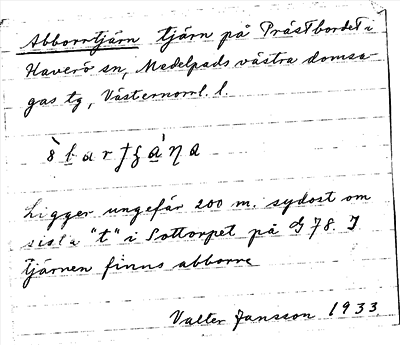 Abborrtjärn tjärn på Prästbordet i
Haverö sn, Medelpads västra domsa-
gas tg, Västernorrl. l.
Ligger ungefär 200 m. sydost om
sista "t" i Sottorpet på G 78. I
tjärnen finns abborre
Valter Jansson 1933